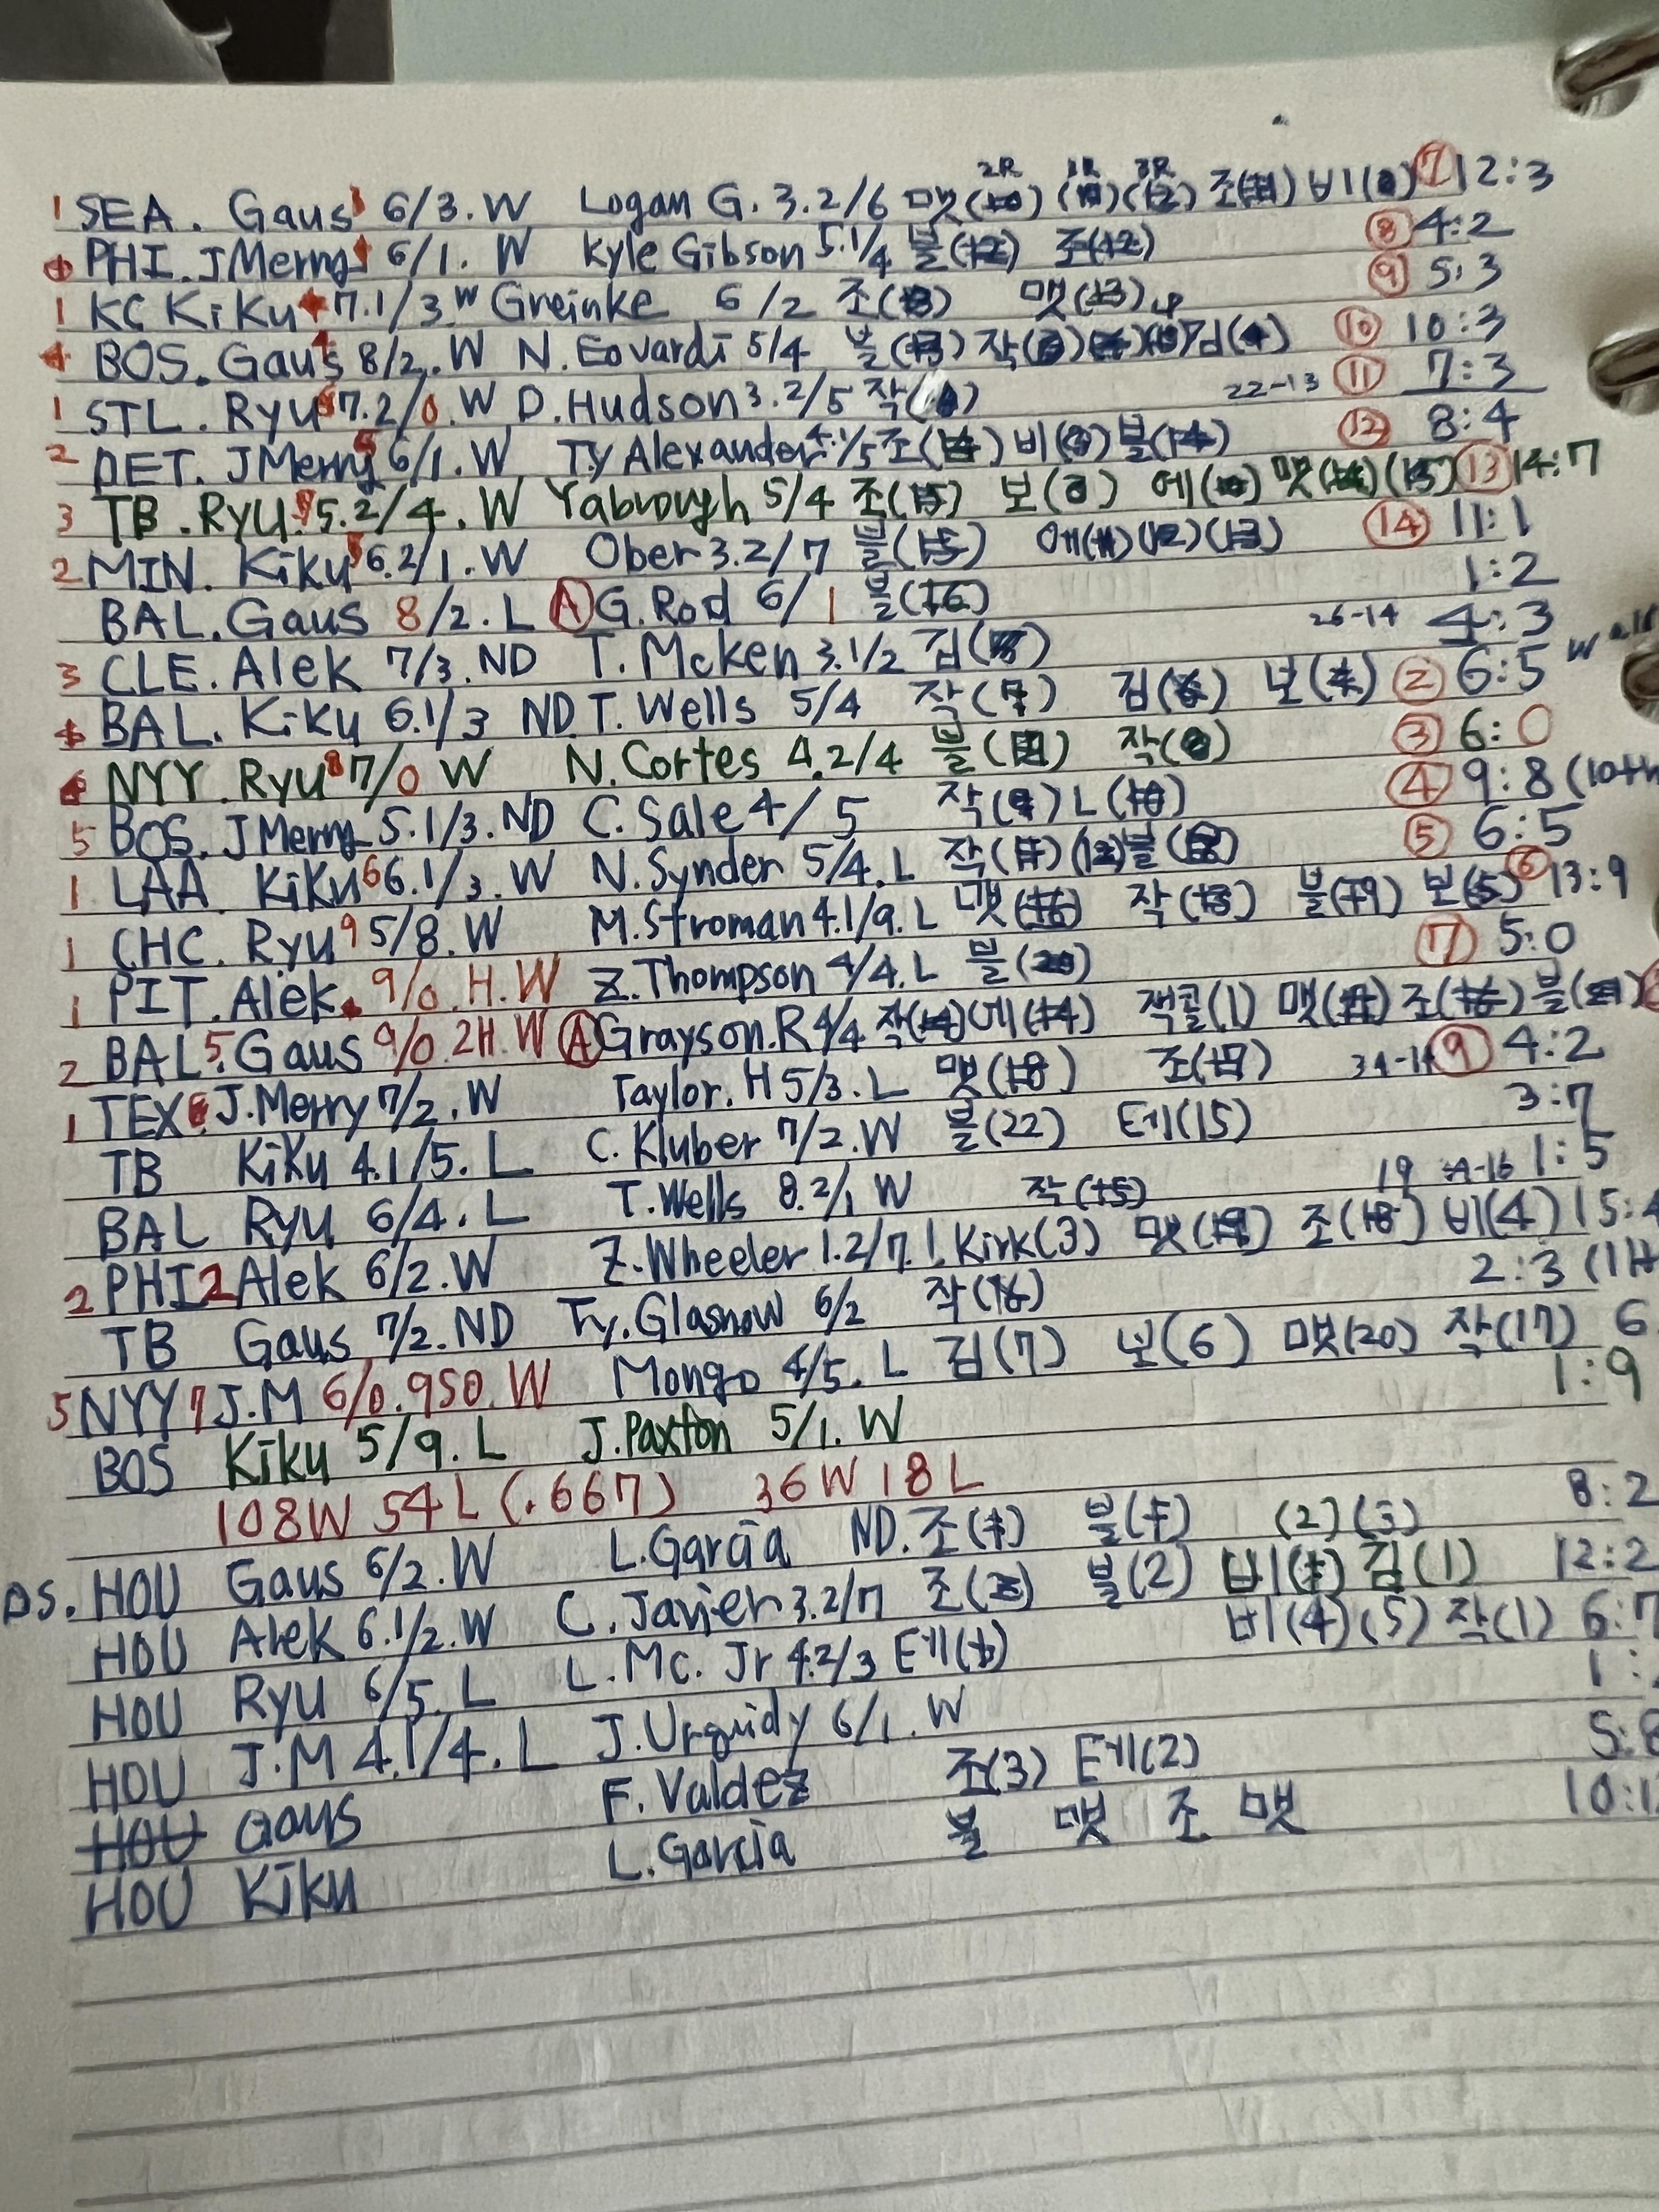 2R 1R 3R
1 SEA. Gaus 6/3. W Logan G. 3.2/6 맷 조 비 ⑦ 12:3
PHI. J Merry 6/1. W Kyle Gibson 5.1/4 블 조 ⑧ 4:2
1 KC Kiku 7.1/3 W Greinke 6/2 조 맷 ⑨ 5:3
BOS. Gaus 8/2. W N. Eovardi 5/4 블 작 김 ⑩ 10:3
1 STL. Ryu 7.2/0. W D. Hudson 3.2/5 작 22-13 ⑪ 7:3
2 DET. J Merry 6/1. W Ty Alexander 4.1/5 조 비 블 ⑫ 8:4
3 TB. Ryu 5.2/4. W Yabrough 5/4 조 보 에 맷 ⑬ 14:7
2 MIN. Kiku 6.2/1. W Ober 3.2/7 블 에 ⑭ 11:1
BAL. Gaus 8/2. L Ⓐ G. Rod 6/1 블(16) 1:2
3 CLE. Alek 7/3. ND T. Mcken 3.1/2 김 26-14 4:3
BAL. Kiku 6.1/3 ND T. Wells 5/4 작 김 보 ② 6:5
NYY. Ryu 8 7/0 W N. Cortes 4.2/4 블 작 ③ 6:0
5 BOS. J Merry 5.1/3. ND C. Sale 4/5 작 L ④ 9:8 (10th
1 LAA Kiku 6 6.1/3. W N. Synder 5/4. L 작 블 ⑤ 6:5
1 CHC. Ryu 9 5/8. W M. Stroman 4.1/9. L 맷 작 블 보 ⑥ 13:9
1 PIT. Alek 9/0. H. W Z. Thompson 4/4. L 블(20) ⑦ 5:0
2 BAL 5. Gaus 9/0. 2H. W Ⓐ Grayson. R 4/4 작 에 잭콜(1) 맷 조 블
1 TEX J. Merry 7/2. W Taylor. H 5/3. L 맷(18) 조(17) ⑨ 4:2
TB Kiku 4.1/5. L C. Kluber 7/2. W 블(22) 테(15) 3:7
BAL Ryu 6/4. L T. Wells 8.2/1 W 작(15) 19 1:5
2 PHI 2 Alek 6/2. W Z. Wheeler 1.2/7. L Kirk(3) 맷 조(18) 비(4) 15:4
TB Gaus 7/2. ND Ty. Glasnow 6/2 작(16) 2:3 (11
5 NYY 7 J.M 6/0. 9S0. W Mongo 4/5. L 김(7) 보(6) 맷(20) 작(17) 6
BOS Kiku 5/9. L J. Paxton 5/1. W 1:9
108W 54L (.667) 36W 18L
DS. HOU Gaus 6/2. W L. Garcia ND. 조 블 (2)(3) 8:2
HOU Alek 6.1/2. W C. Javier 3.2/7 조 블(2) 비 김(1) 12:2
HOU Ryu 6/5. L L. Mc. Jr 4.2/3 테 비(4)(5) 작(1) 6:7
HOU J.M 4.1/4. L J. Urquidy 6/1. W 1:
HOU Gaus F. Valdez 조(3) 테(2) 5:8
HOU Kiku L. Garcia 블 맷 조 맷 10:1